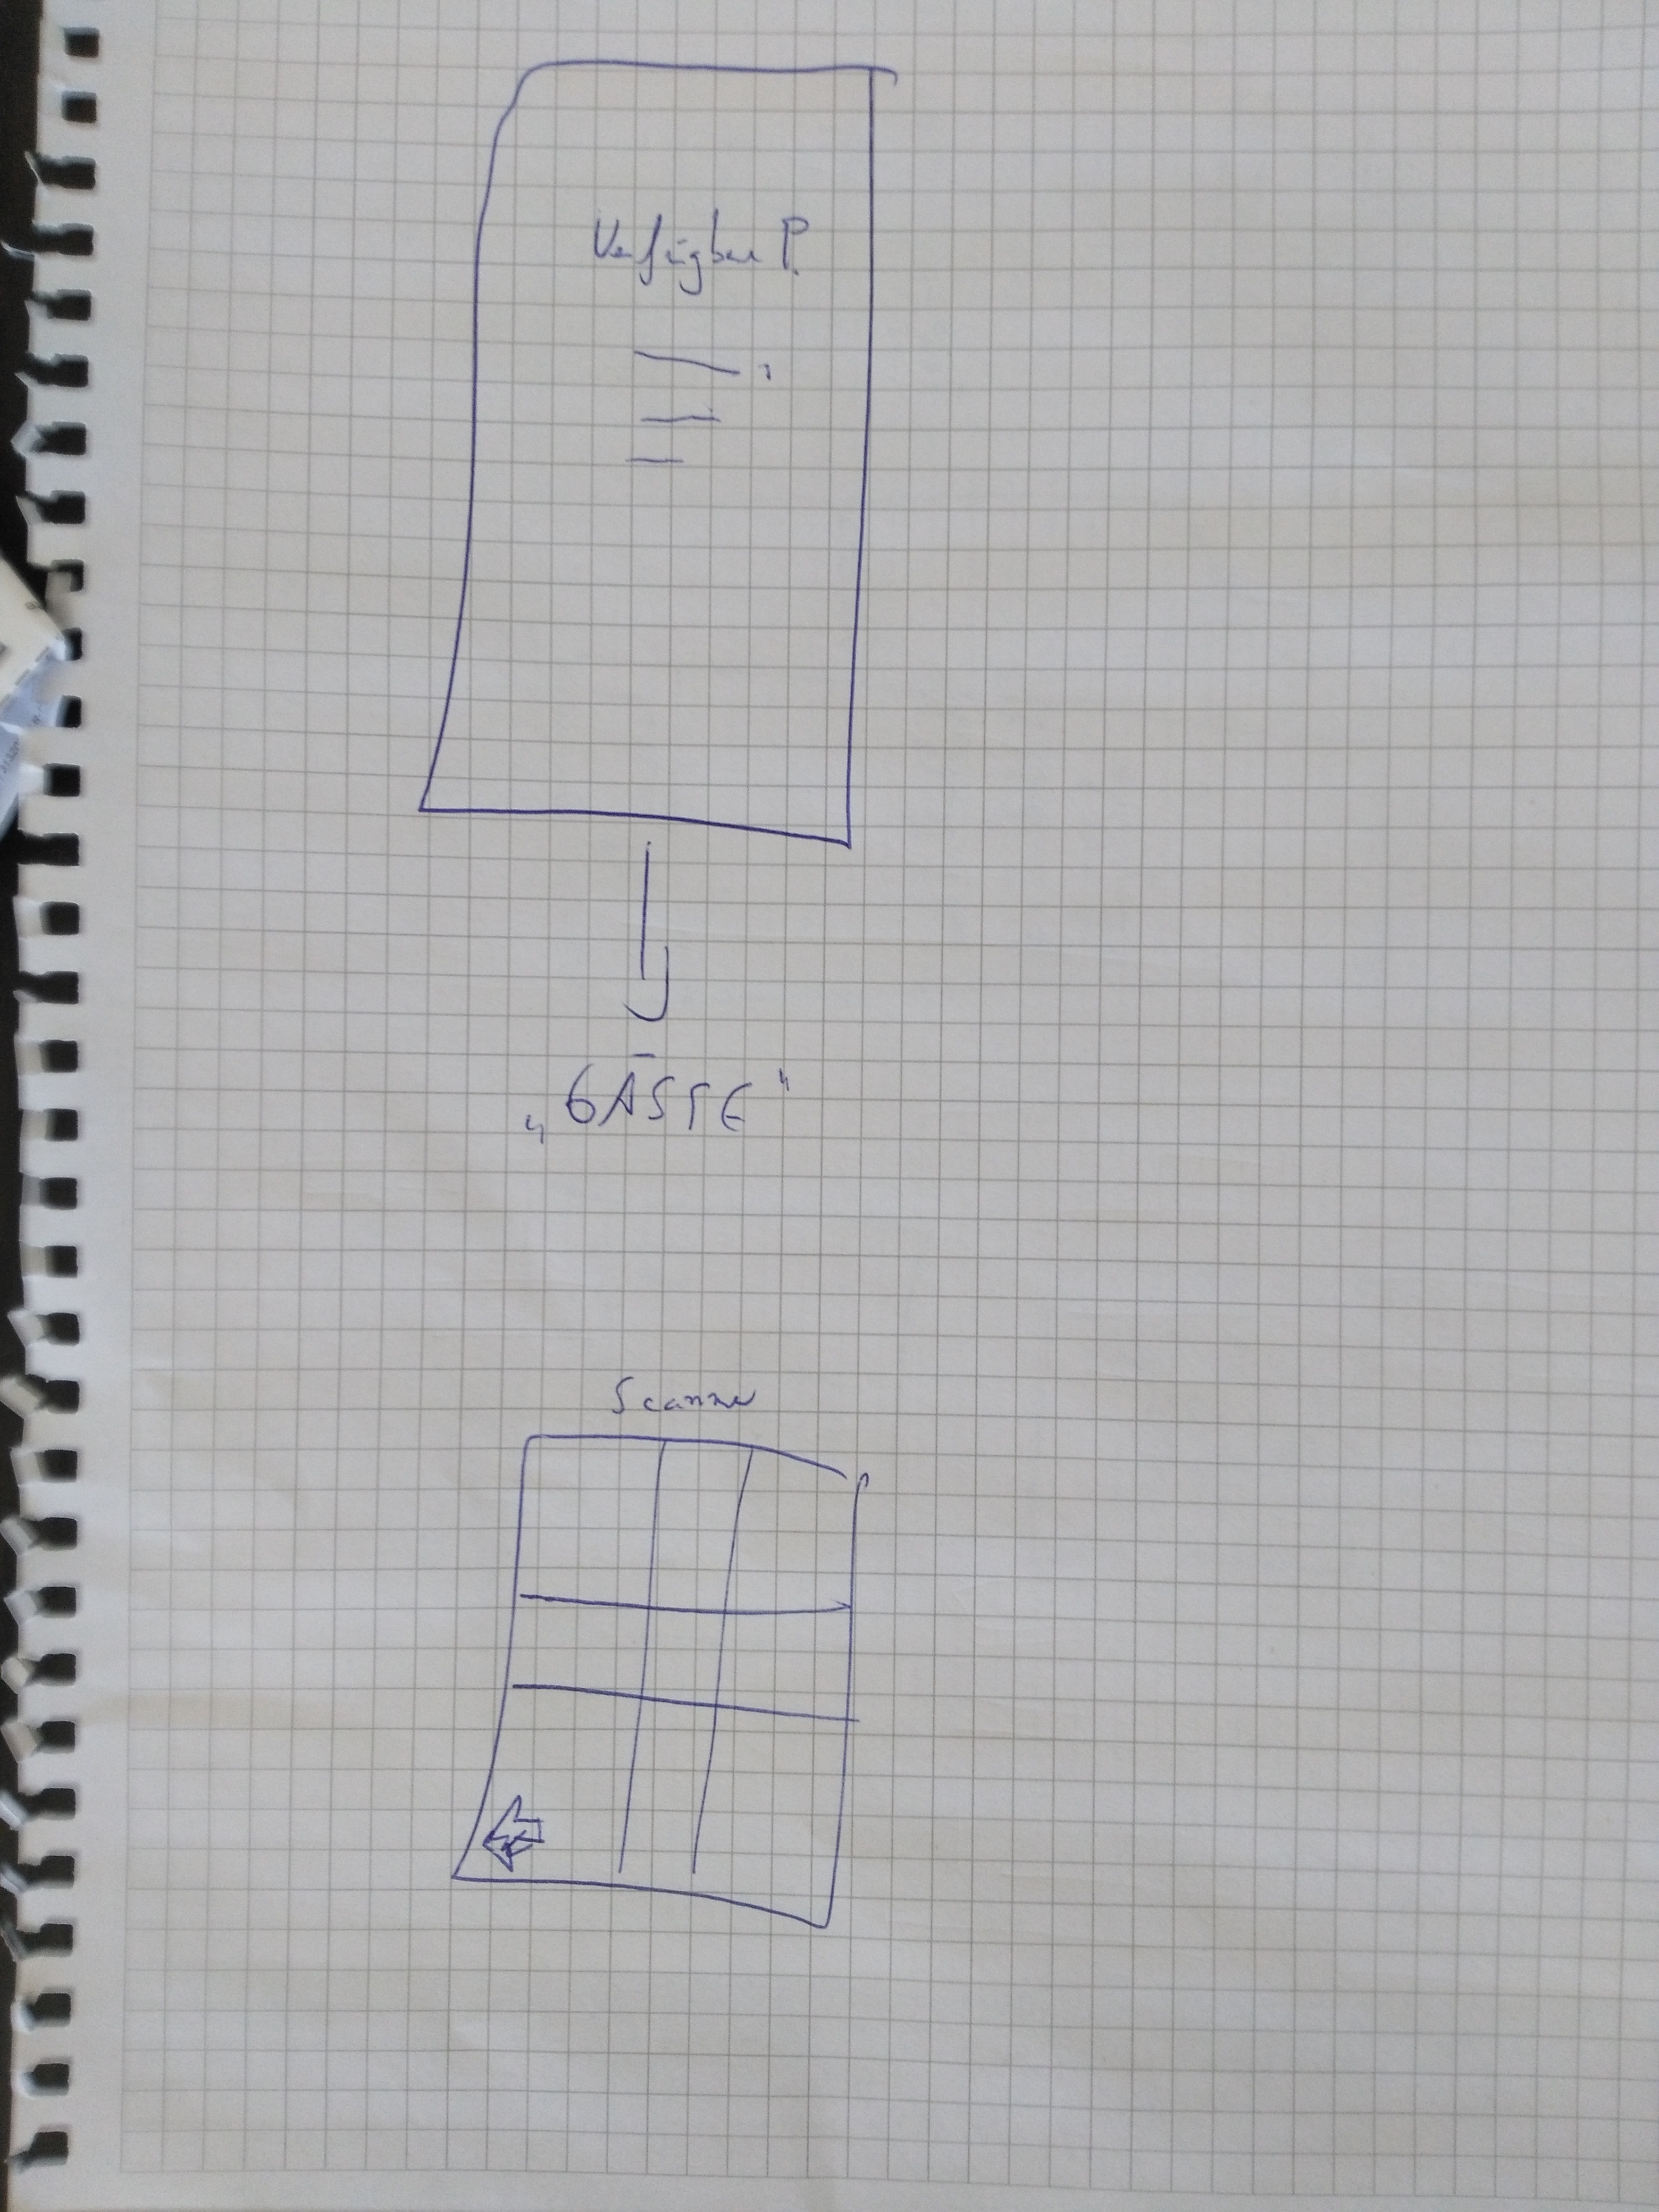 Verfügbare P.
„GÄSTE"
Scanner